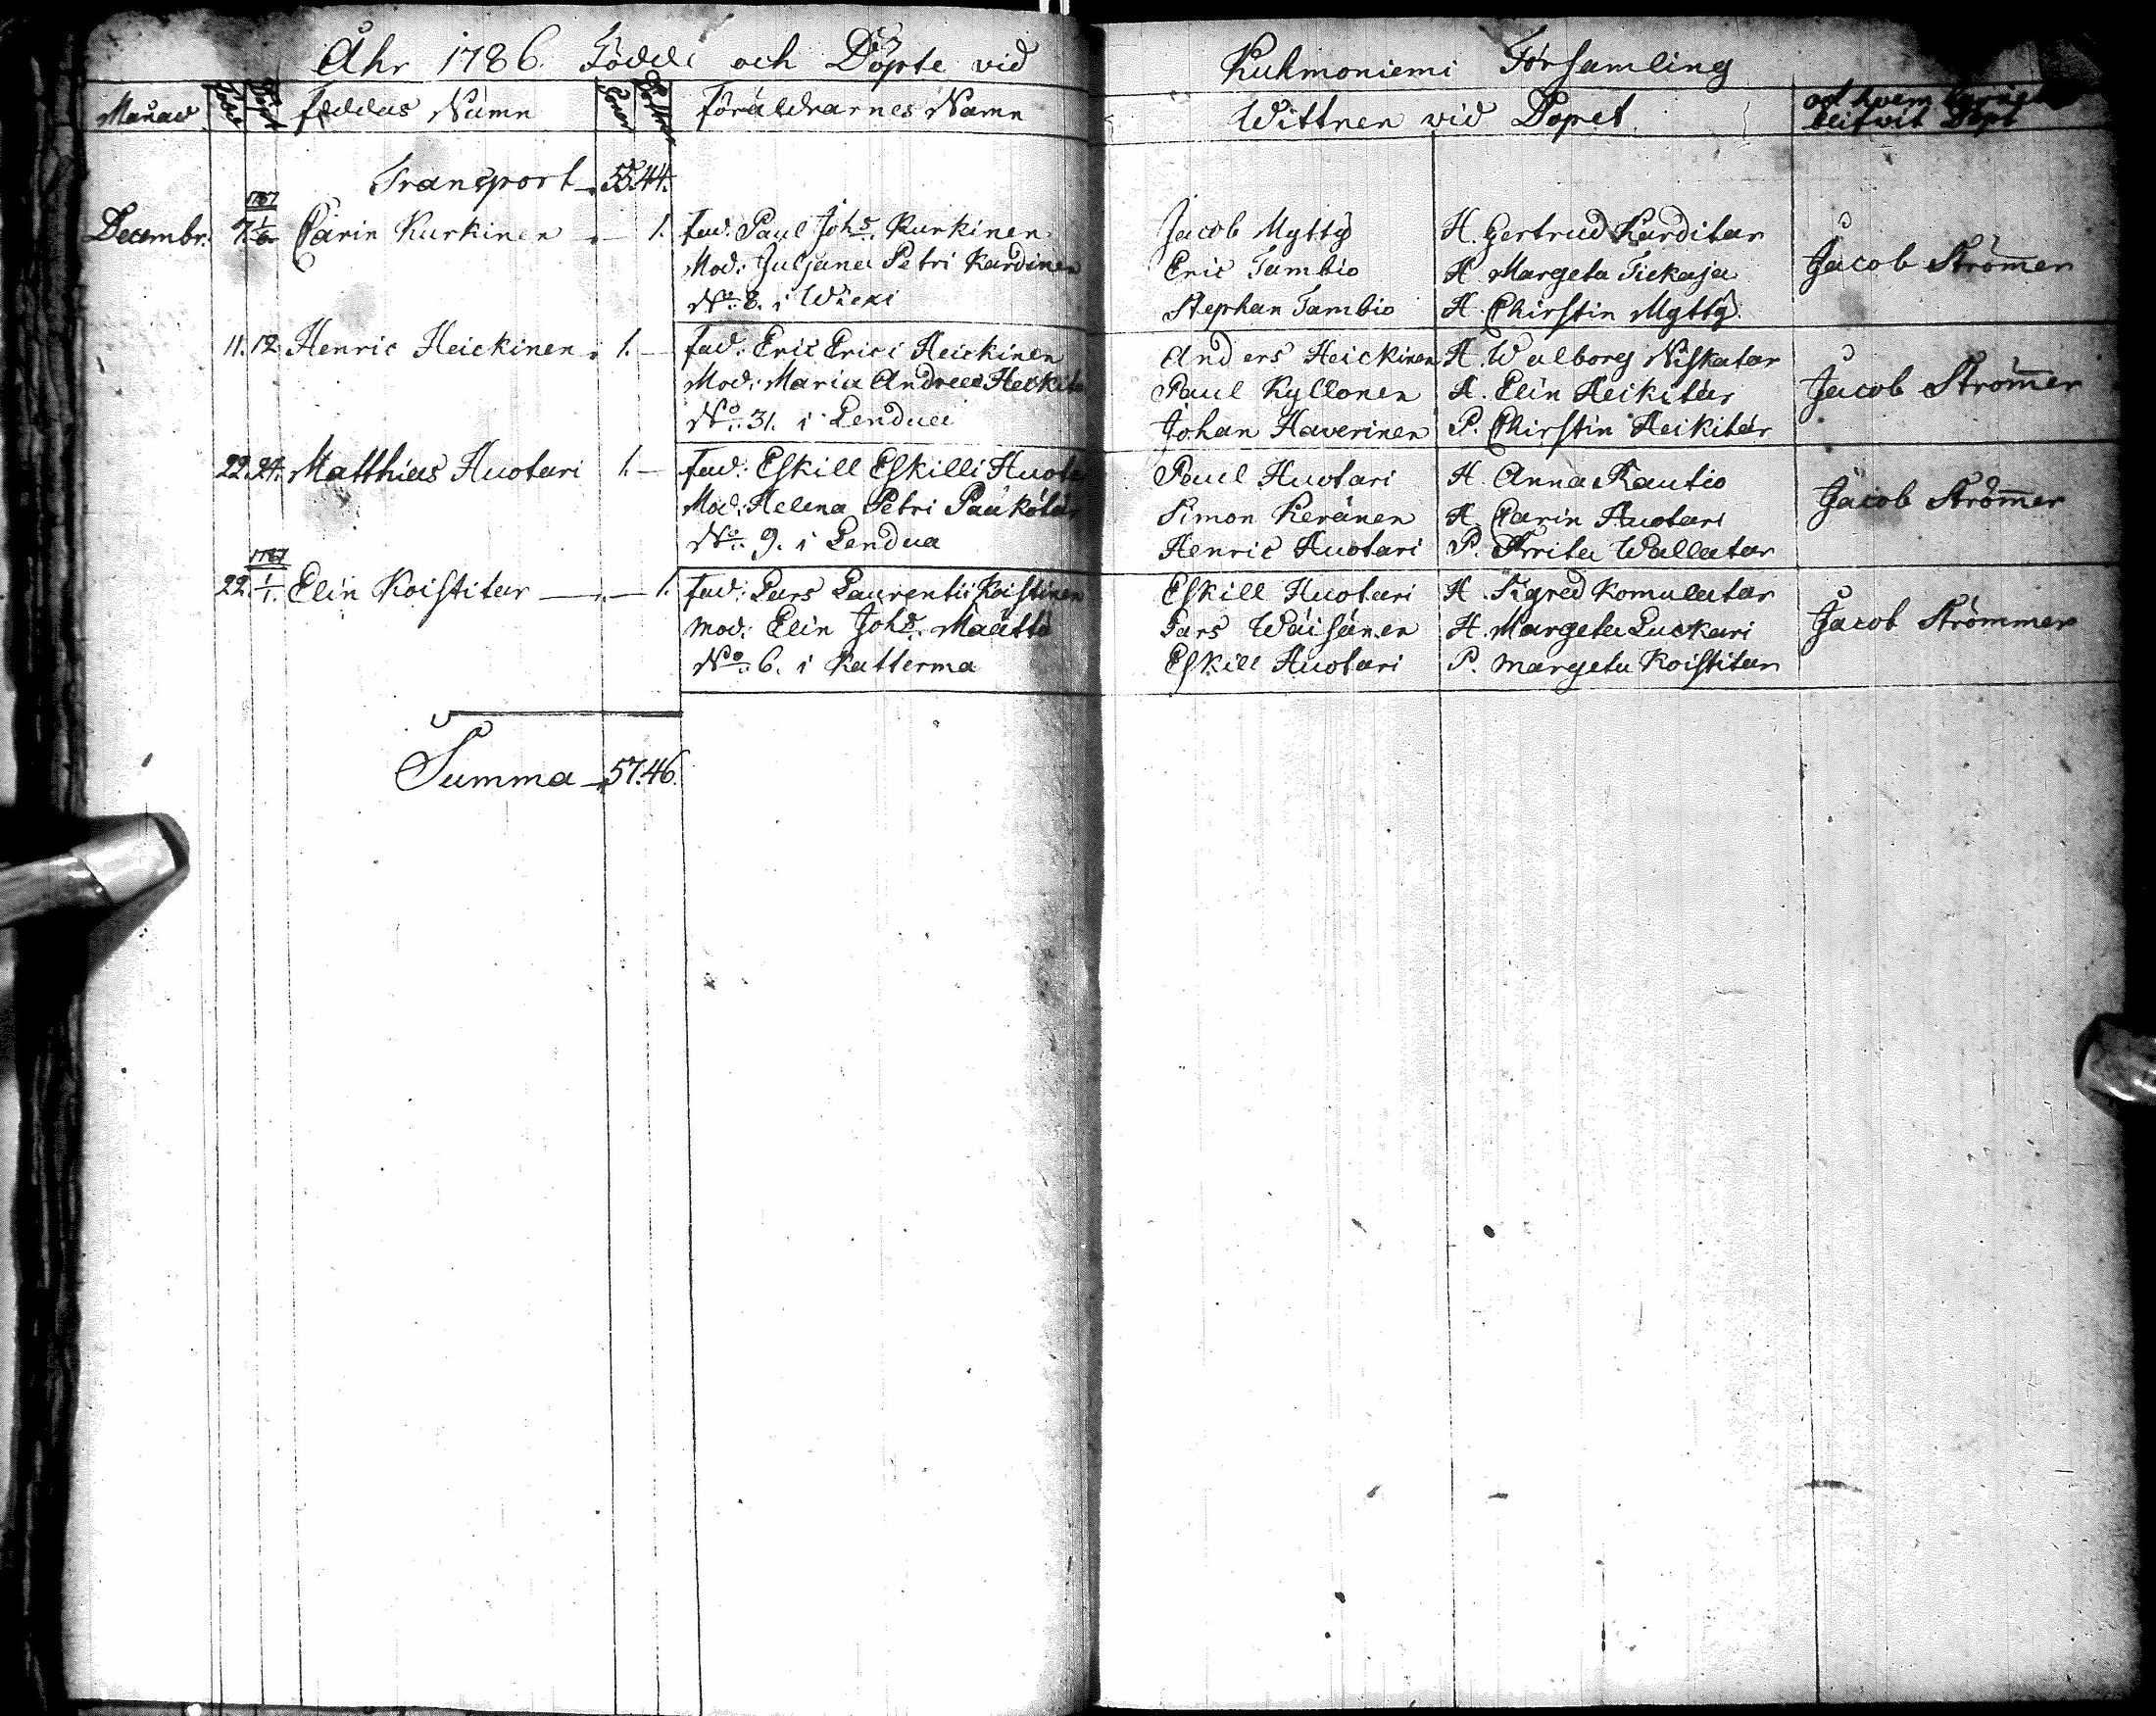 Åhr 1786. Födde och Döpte vid Kuhmoniemi Församling
Månad Född Döpt Föddas Namn Söner Döttrar Föräldrarnes Namn Wittnen vid Dopet
blifvit Döpt
Transport 55. 44.
1787
Decembr. 7. 1/6 Carin Kurkinen — 1. fad: Paul Joh:s Kurkinen Jacob Mytty H. Gertrud Karditar
Mod: Juljana Petri Kardinen Eric Tambio H. Margeta Tickaja Jacob Strömmer
No: 8. i Wieki Stephan Tambio H. Chirstin Mytty
11. 12 Henric Heickinen 1. — fad: Eric Erici Heickinen Anders Heickinen H. Walborg Niskatar
Mod: Maria Andreæ Paul Kyllönen H. Elin Heikitär Jacob Strömer
No: 31. i Lendua Johan Haverinen P. Chirstin Heikitär
22. 24. Matthias Huotari 1. — fad: Eskill Eskilli Paul Huotari H. Anna Rautio
Mod: Helena Petri Simon Keränen H. Carin Huotari Jacob Strömer
No: 9. i Lendua Henric Huotari P. Wallatar
1787
22. 1/1. Elin Koistitar — 1. fad: Lars Laurentii Koistinen Eskill Huotari H. Sigred Komulatar
mod: Elin Joh:s Määttä Lars Wäisänen H. Margeta Luckari Jacob Strömmer
No: 6. i Katterma Eskill Huotari P. Margeta Koistitar
Summa 57. 46.